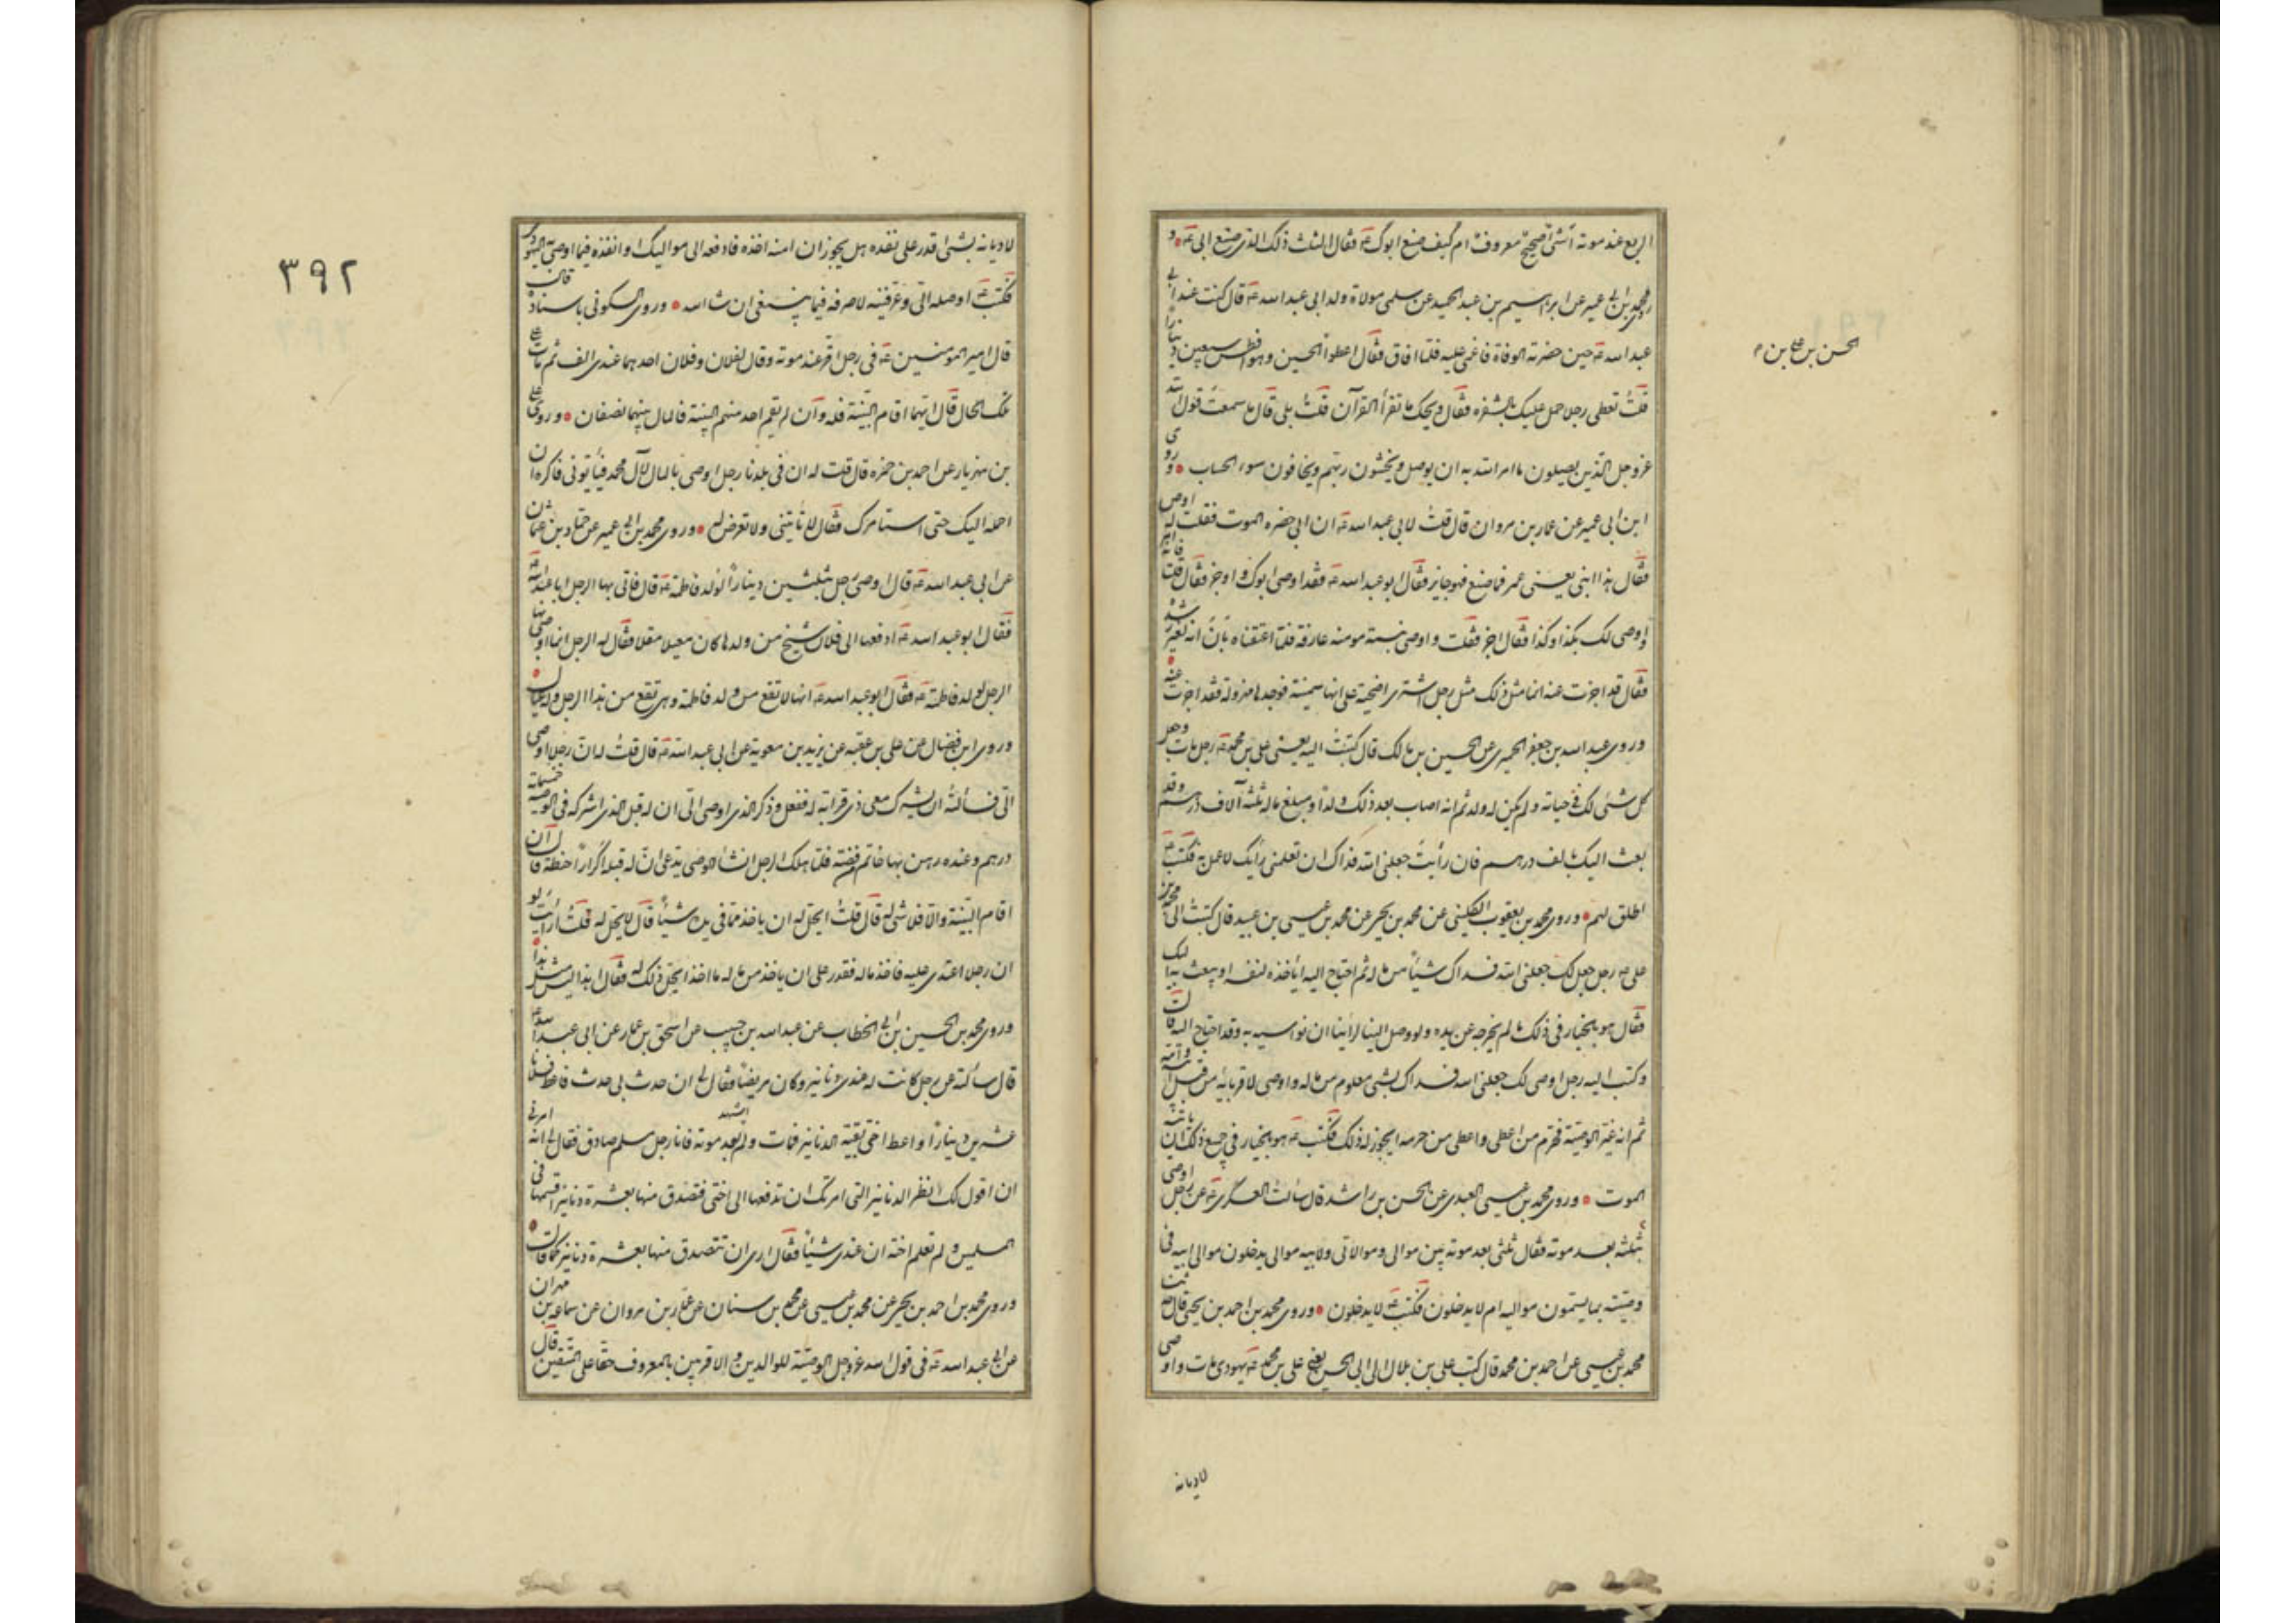 الربع عند موته أشئ صحيح معروف ام كيف صنع ابوك ع فقال الثلث ذلك الذى صنع ابى ع و
روى محمد بن ابى عمير عن ابراهيم بن عبد الحميد عن سلمى مولاة ولد ابى عبد الله ع قال كنت عند ابى
عبد الله ع حين حضرته الوفاة فاغمى عليه فلما افاق فقال اعطوا الحسين وهو الافطس سبعين دينارا
الحسن بن على بن م
قلت تعطى رجلا حمل عليك بالشفرة فقال ويحك ما تقرأ القرآن قلت بلى قال ما سمعت قول الله
عز وجل الذين يصلون ما امر الله به ان يوصل ويخشون ربهم ويخافون سوء الحساب وروى
ابن ابى عمير عن عمار بن مروان قال قلت لابى عبد الله ع ان ابى حضره الموت فقلت له اوص
فقال هذا ابنى يعنى عمر فما صنع فهو جايز فقال ابو عبد الله ع فقد اوصى ابوك واوجز فقال قلت فانه امر
واوصى لك بكذا وكذا فقال اجز فقلت واوصى بنسمة مومنة عارفة فلما اعتقناه بان انه لغير رشده
فقال قد اجزت عنه انما مثل ذلك مثل رجل اشترى اضحية على انها سمينة فوجدها مهزولة فقد اجزت عنه
وروى عبد الله بن جعفر الحميرى عن الحسين بن مالك قال كتبت اليه يعنى على بن محمد ع رجل مات وجعل
كل شئى لك فى حياته ولم يكن له ولد ثم انه اصاب بعد ذلك ولدا ومبلغ ماله ثلثه آلاف درهم وقد
بعث اليك بالف درهم فان رأيت جعلنى الله فداك ان تعلمنى رأيك لاعمل به فكتب ع
اطلق لهم وروى محمد بن يعقوب الكلينى عن محمد بن يحيى عن محمد بن عيسى بن عبيد قال كتبت الى محمد بن
على ع رجل جعل لك جعلنى الله فداك شيئا من ماله ثم احتاج اليه أيأخذه لنفسه او يبعث به اليك
فقال هو بالخيار فى ذلك ما لم يخرجه عن يده ولو وصل الينا لرأينا ان نواسيه به وقد احتاج اليه قال
وكتب اليه رجل اوصى لك جعلنى الله فداك بشئى معلوم من ماله واوصى لاقربائه من قبل ابيه وامه
ثم انه غير الوصية فحرم من اعطى واعطى من حرمه ايجوز له ذلك فكتب ع هو بالخيار فى جميع ذلك الى ان ياتيه
الموت وروى محمد بن عيسى العبدى عن الحسن بن راشد قال سألت العسكرى ع عن رجل اوصى
بثلثه بعد موته فقال ثلثى بعد موتى بين موالى ومولاتى ولابيه موالى يدخلون موالى ابيه فى
وصيته بما يسمون مواليه ام لا يدخلون فكتب ع لا يدخلون وروى محمد بن احمد بن يحيى قال حدثنا
محمد بن عيسى عن احمد بن محمد قال كتب على بن بلال الى ابى الحسن يعنى على بن محمد ع يهودى مات واوصى
لاديانه
٣٩٢
لاديانه بشئى اقدر على نقده هل يجوز ان امنه اخذه فادفعه الى مواليك او انفذه فيما اوصى به اليهودى
فكتب ع اوصله الى وعرفنيه لاصرفه فيما ينبغى ان شاء الله وروى السكونى باسناده قال
قال امير المومنين ع فى رجل اقر عند موته وقال لفلان وفلان احدهما عندى الف ثم مات على
تلك الحال قال ايهما اقام البينة فله وان لم يقم احد منهم البينة فالمال بينهما نصفان وروى على
بن مهزيار عن احمد بن حمزه قال قلت له ان فى بلدنا رجل اوصى بالمال لآل محمد فيأتونى فاكره ان
احمله اليك حتى استامرك فقال لا تاتينى ولا تعرض له وروى محمد بن ابى عمير عن حماد بن عثمان
عن ابى عبد الله ع قال اوصى رجل بثلثين دينارا لولد فاطمة ع قال فاتى بها الرجل ابا عبد الله ع
فقال ابو عبد الله ع ادفعها الى فلان شيخ من ولدها كان معيلا مقلا فقال له الرجل انما اوصى بها
الرجل لولد فاطمة ع فقال ابو عبد الله ع انها لا تقع من ولد فاطمة وهى تقع من هذا الرجل وله عيال
وروى ابن فضال عن على بن عقبه عن يزيد بن معوية عن ابى عبد الله ع قال قلت له ان رجلا اوصى
الى فسألته ان يشرك معى ذى قرابة له ففعل وذكر الذى اوصى الى ان له قبل الذى اشركه فى الوصية خمسمائة
درهم وعنده رهن بها خاتم فضة فلما هلك الرجل انشأ الوصى يدعى ان له قبله اكرارا حنطة قال ان
اقام البينة والا فلا شئ له قال قلت ايحل له ان ياخذ مما فى يده شيئا قال لا يحل له قلت أرأيت لو
ان رجلا اعتدى عليه فاخذ ماله فقدر على ان ياخذ من ماله ما اخذ ايحل ذلك له فقال ان هذا ليس مثل هذا
وروى محمد بن الحسين بن ابى الخطاب عن عبد الله بن حبيب عن اسحق بن عمار عن ابى عبد الله ع
قال سألته عن رجل كانت له عندى دنانير وكان مريضا فقال لى ان حدث بى حدث فاعط فلانا
عشرين دينارا واعط اختى بقية الدنانير فمات ولم اشهد بعد موته فاتانى رجل مسلم صادق فقال لى انه امرنى
ان اقول لك انظر الدنانير التى امرتك ان تدفعها الى اختى فتصدق منها بعشرة دنانير اقسمها فى
المسلمين ولم تعلم اخته ان عندى شيئا فقال ارى ان تتصدق منها بعشرة دنانير كما قال
وروى محمد بن احمد بن يحيى عن محمد بن عيسى عن محمد بن سنان عن عمار بن مروان عن سماعه بن مهران
عن ابى عبد الله ع فى قول الله عز وجل الوصية للوالدين والاقربين بالمعروف حقا على المتقين قال